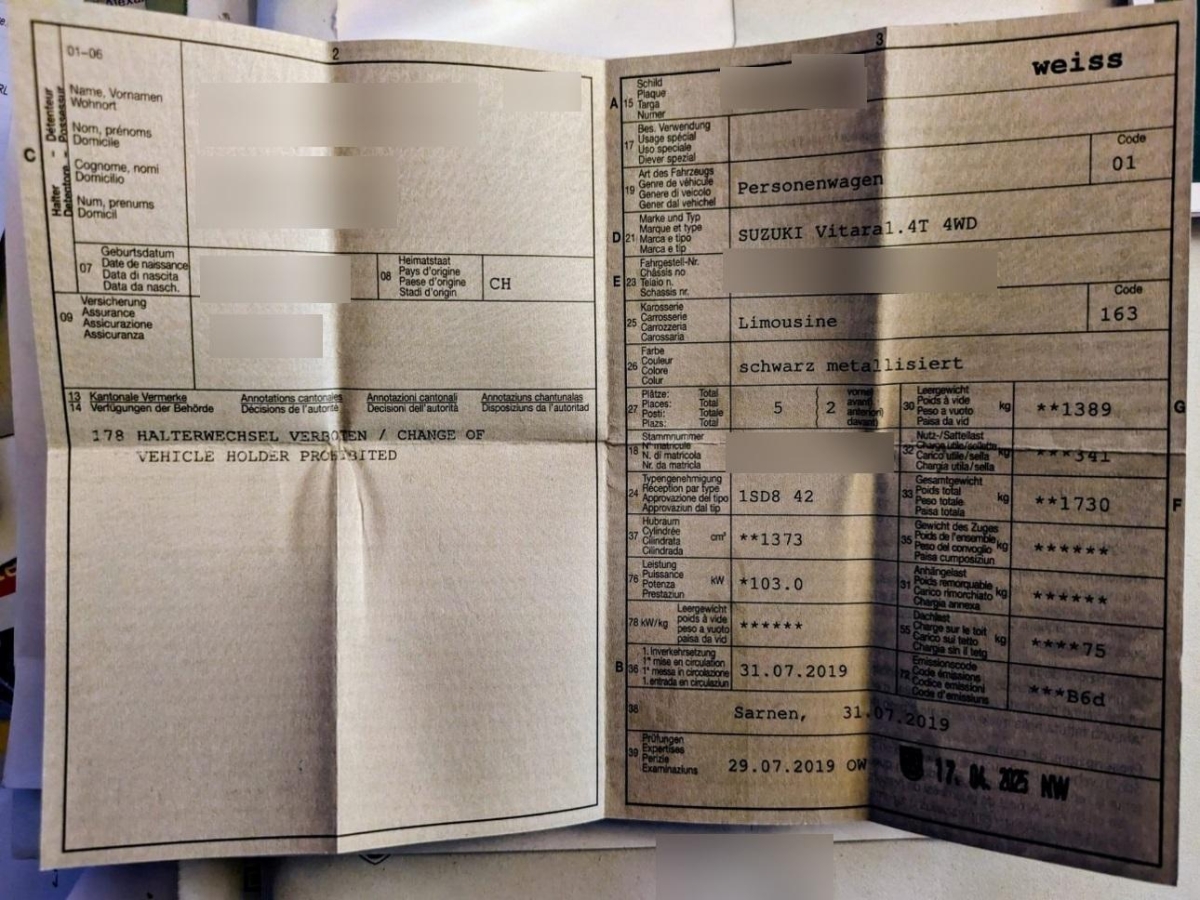 01–06
2
3
weiss
C
Halter - Détenteur
Detentore - Possessur
Name, Vornamen
Wohnort
Nom, prénoms
Domicile
Cognome, nomi
Domicilio
Num, prenums
Domicil
07
Geburtsdatum
Date de naissance
Data di nascita
Data da nasch.
08
Heimatstaat
Pays d'origine
Paese d'origine
Stadi d'origin
CH
09
Versicherung
Assurance
Assicurazione
Assicuranza
13 Kantonale Vermerke Annotations cantonales Annotazioni cantonali Annotaziuns chantunalas
14 Verfügungen der Behörde Décisions de l'autorité Decisioni dell'autorità Disposiziuns da l'autoritad
178 HALTERWECHSEL VERBOTEN / CHANGE OF
VEHICLE HOLDER PROHIBITED
A 15
Schild
Plaque
Targa
Numer
17
Bes. Verwendung
Usage spécial
Uso speciale
Diever spezial
Code
01
19
Art des Fahrzeugs
Genre de véhicule
Genere di veicolo
Gener dal vehichel
Personenwagen
D 21
Marke und Typ
Marque et type
Marca e tipo
Marca e tip
SUZUKI Vitara1.4T 4WD
E 23
Fahrgestell-Nr.
Châssis no
Telaio n.
Schassis nr.
25
Karosserie
Carrosserie
Carrozzeria
Carossaria
Limousine
Code
163
26
Farbe
Couleur
Colore
Colur
schwarz metallisiert
27
Plätze: Total
Places: Total
Posti: Totale
Plazs: Total
5
2
vorne
avant
anteriori
davant
30
Leergewicht
Poids à vide
Peso a vuoto
Paisa da vid
kg
**1389
G
18
Stammnummer
N° matricule
N. di matricola
Nr. da matricla
32
Nutz-/Sattellast
Charge utile/sellette
Carico utile/sella
Chargia utila/sella
kg
***341
24
Typengenehmigung
Réception par type
Approvazione del tipo
Approvaziun dal tip
1SD8 42
33
Gesamtgewicht
Poids total
Peso totale
Paisa totala
kg
**1730
F
37
Hubraum
Cylindrée
Cilindrata
Cilindrada
cm³
**1373
35
Gewicht des Zuges
Poids de l'ensemble
Peso del convoglio
Paisa cumposiziun
kg
******
76
Leistung
Puissance
Potenza
Prestaziun
kW
*103.0
31
Anhängelast
Poids remorquable
Carico rimorchiato
Chargia annexa
kg
******
78 kW/kg
Leergewicht
poids à vide
peso a vuoto
paisa da vid
******
55
Dachlast
Charge sur le toit
Carico sul tetto
Chargia sin il tetg
kg
****75
B 36
1. Inverkehrsetzung
1re mise en circulation
1a messa in circolazione
1. entrada en circulaziun
31.07.2019
72
Emissionscode
Code émissions
Codice emissioni
Code d'emissiuns
***B6d
38
Sarnen, 31.07.2019
39
Prüfungen
Expertises
Perizie
Examinaziuns
29.07.2019 OW
17. 04. 2025 NW